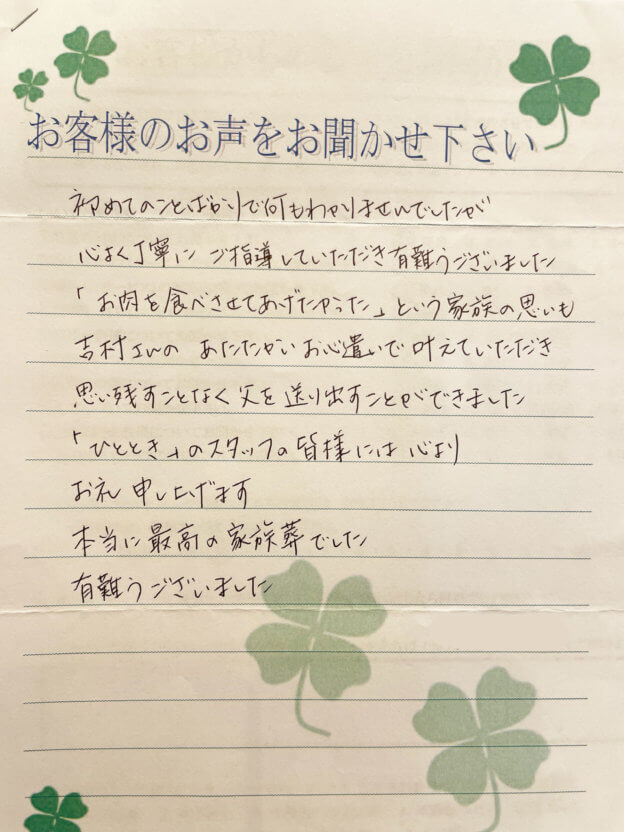 お客様のお声をお聞かせ下さい
初めてのことばかりで何もわかりませんでしたが
心よく丁寧に ご指導していただき有難うございました
「お肉を食べさせてあげたかった」という家族の思いも
吉村さんの あたたかいお心遣いで 叶えていただき
思い残すことなく 父を送り出すことができました
「ひととき」のスタッフの皆様には 心より
お礼 申し上げます
本当に最高の家族葬でした
有難うございました